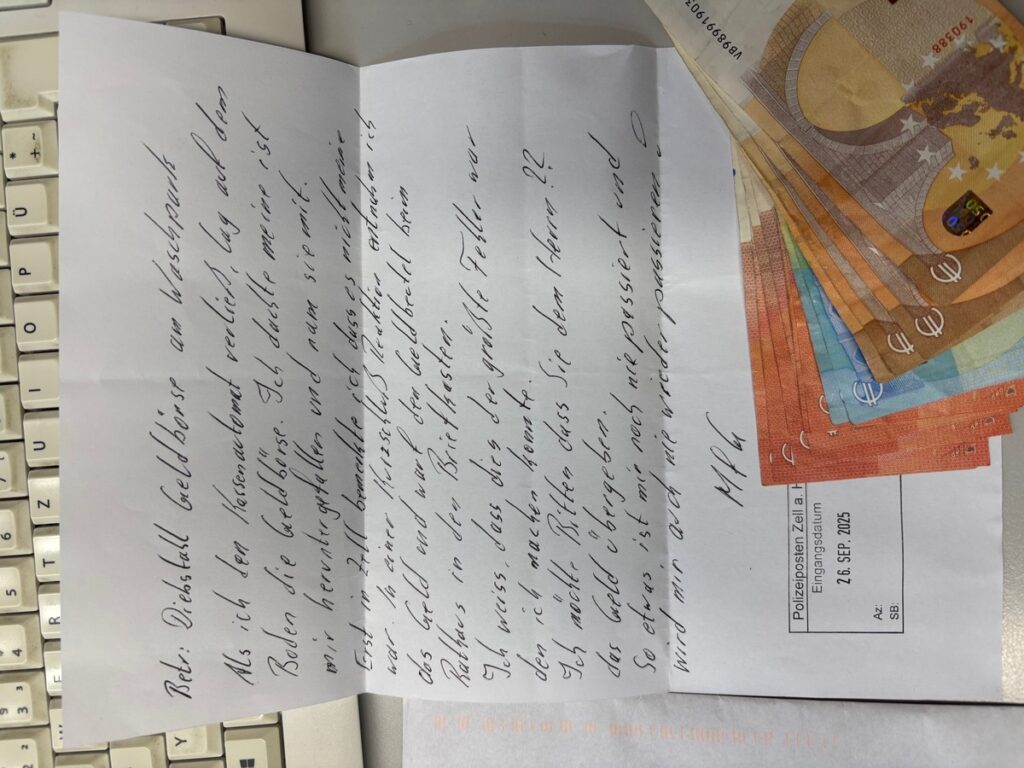 Betr: Diebstall Geldbörse am Waschpark
Als ich den Kassenautomat verließ, lag auf dem
Boden die Geldbörse. Ich dachte meine ist
mir heruntergfallen und nam sie mit.
Erst in Zell bemerkte ich dass es nicht meine
war. In einer Kurzschluß Reaktion entnahm ich
das Geld und warf den Geldbeutel beim
Rathaus in den Briefkasten.
Ich weiss, dass dies der größte Fehler war
den ich machen konnte.
Ich möchte Bitten dass Sie dem Herrn ??
das Geld übergeben.
So etwas, ist mir noch nie passiert und
wird mir auch nie wieder passieren
MfG
Polizeiposten Zell a. H
Eingangsdatum
26. SEP. 2025
Az:
SB:
VB98991903
190388
* + ~
Ü
P
O
I
U
Z
T
R
E
W
Y
7
6
5
4
3
2